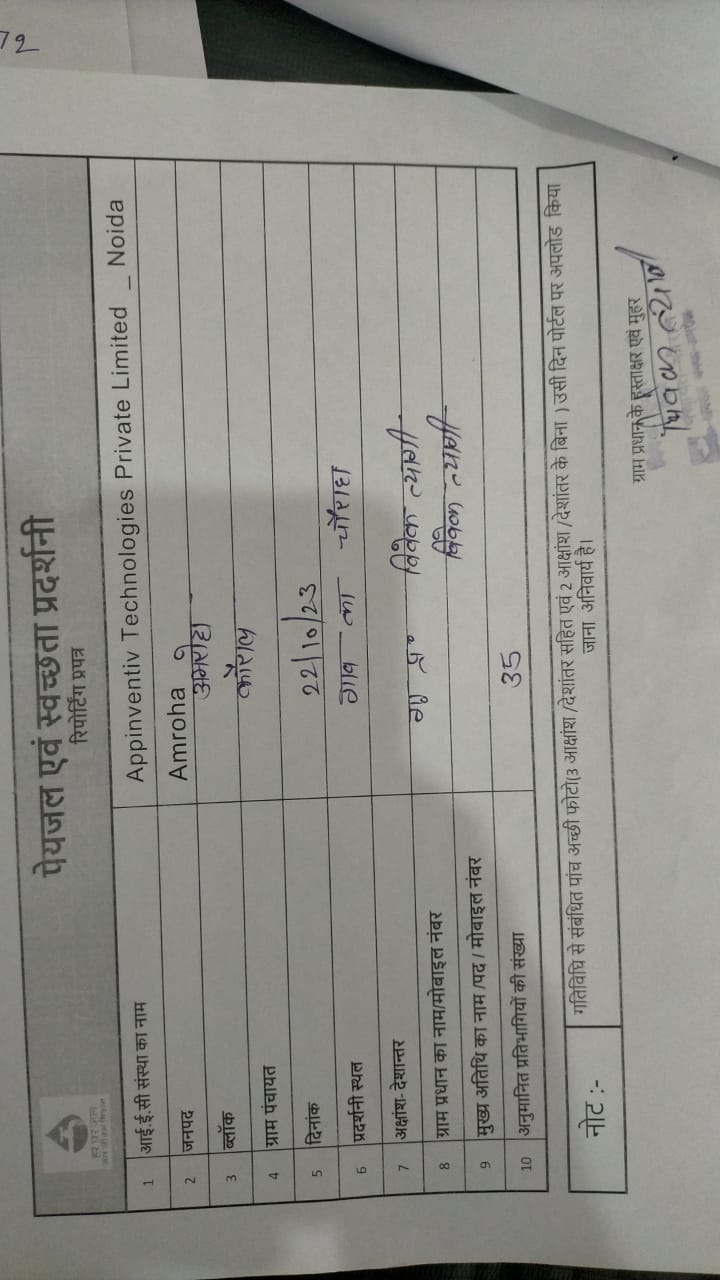 72
हर घर जल
जल जीवन मिशन
पेयजल एवं स्वच्छता प्रदर्शनी
रिपोर्टिंग प्रपत्र
1 आई.ई.सी संस्था का नाम Appinventiv Technologies Private Limited _ Noida
2 जनपद Amroha
3 ब्लॉक अमरोहा
4 ग्राम पंचायत कौराल
5 दिनांक 22/10/23
6 प्रदर्शनी स्थल गाव का चौराहा
7 अक्षांश- देशान्तर
8 ग्राम प्रधान का नाम/मोबाइल नंबर विवेक त्यागी
9 मुख्य अतिथि का नाम /पद / मोबाइल नंबर विवेक त्यागी
10 अनुमानित प्रतिभागियों की संख्या 35
नोट :- गतिविधि से संबंधित पांच अच्छी फोटो(3 आक्षांश /देशांतर सहित एवं 2 आक्षांश /देशांतर के बिना ) उसी दिन पोर्टल पर अपलोड किया
जाना अनिवार्य है।
ग्राम प्रधान के हस्ताक्षर एवं मुहर
विवेक त्यागी